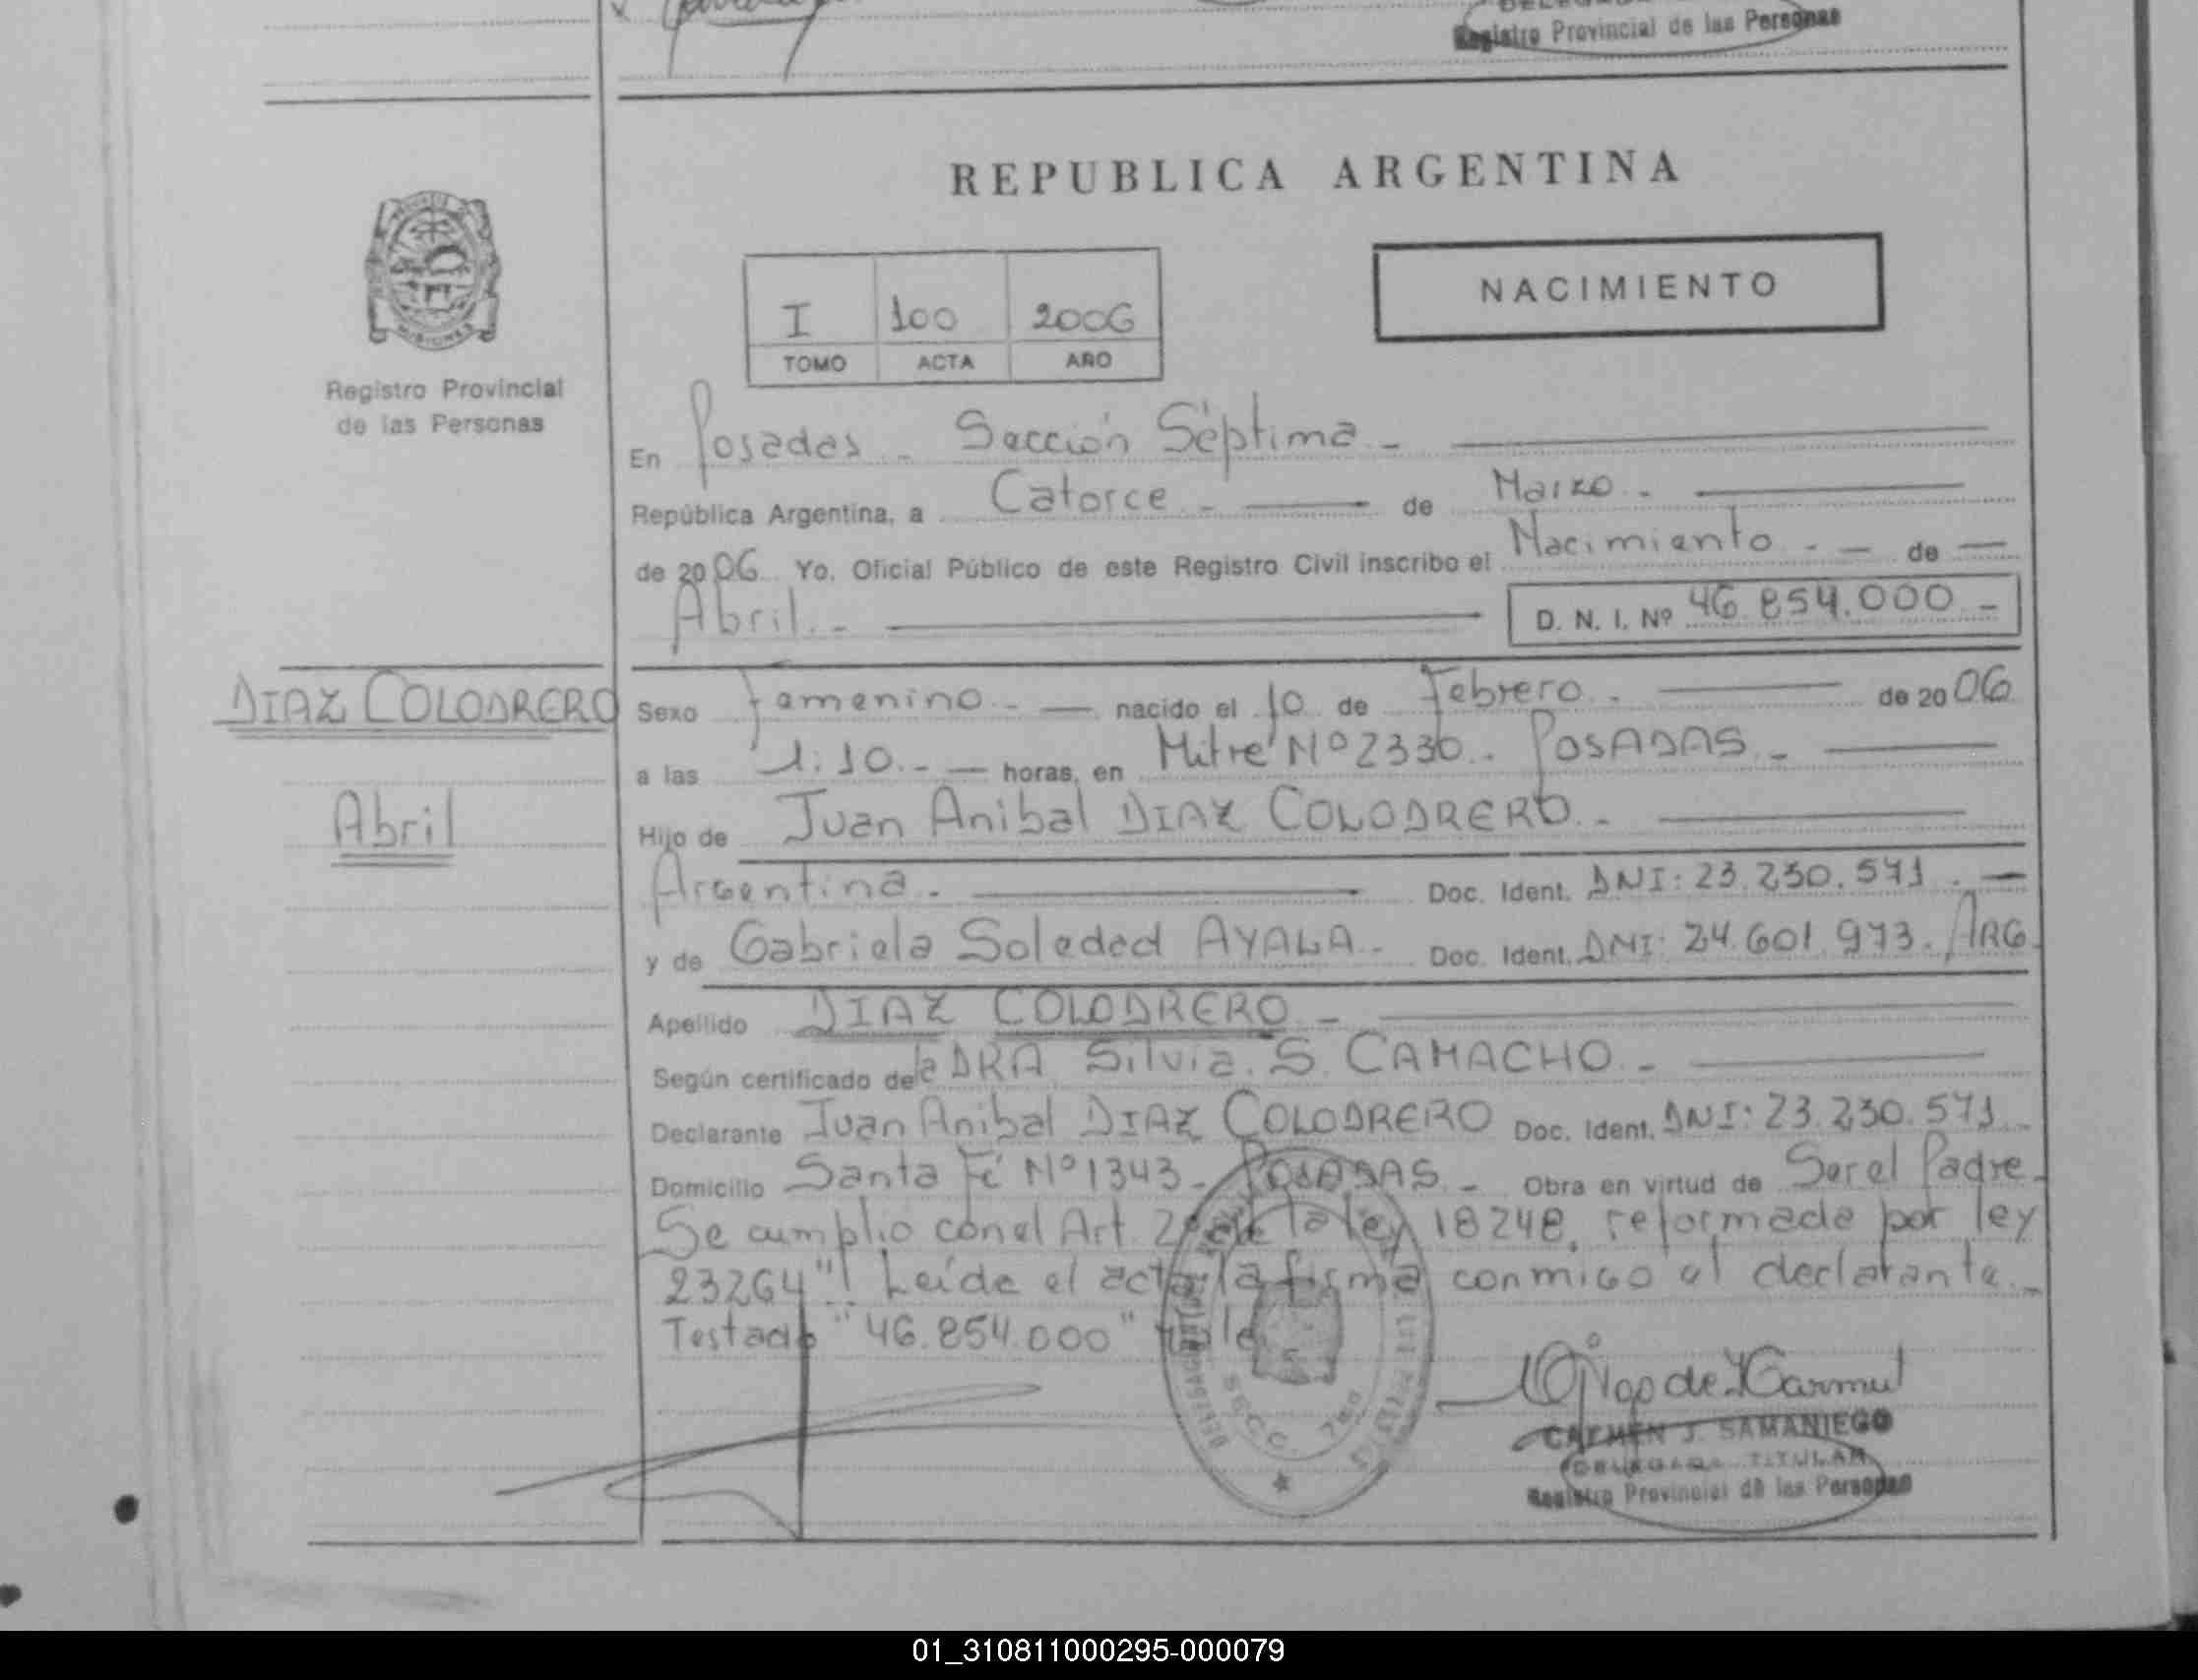 Registro Provincial de las Personas
REPUBLICA ARGENTINA
MISIONES
Registro Provincial
de las Personas
NACIMIENTO
I 100 2006
TOMO ACTA AÑO
En Posadas - Sección Séptima -
República Argentina, a Catorce - de Marzo. -
de 2006 Yo, Oficial Público de este Registro Civil inscribo el Nacimiento - - de
Abril. -
D. N. I. Nº 46.854.000 -
DIAZ COLODRERO
Abril
Sexo Femenino - nacido el 10 de Febrero. - de 2006
a las 1:10 - - horas, en Mitre Nº 2330. - POSADAS. -
Hijo de Juan Anibal DIAZ COLODRERO. -
Argentina. - Doc. Ident. DNI: 23.230.571. -
y de Gabriela Soledad AYALA - Doc. Ident. DNI: 24.601.973. ARG.
Apellido DIAZ COLODRERO -
Según certificado de la DRA Silvia. S. CAMACHO. -
Declarante Juan Anibal DIAZ COLODRERO Doc. Ident. DNI: 23.230.571
Domicilio Santa Fé Nº 1343 - POSADAS - Obra en virtud de Ser el Padre -
Se cumplio con el Art. 2º de la ley 18248, reformada por ley
23264". Leída el acta la firma conmigo el declarante. -
Testado "46.854.000" vale
SECC. 7ma
CARMEN J. SAMANIEGO
DELEGADA TITULAR
Registro Provincial de las Personas
01_310811000295-000079